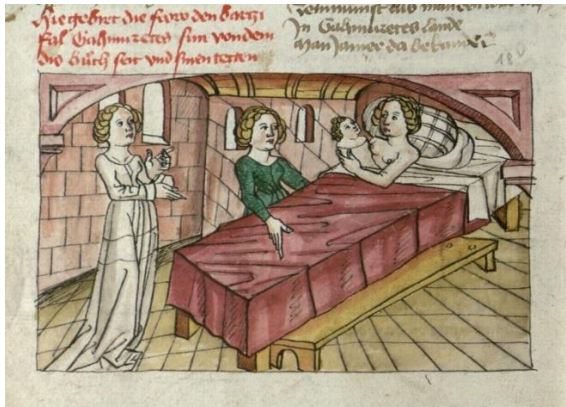 Hie gebirt die frow den bartzi
fal Gahmuretes sun von dem
dis bůch seit und sinen tetten
In Gahmuretes lande
Man jamer da bekande